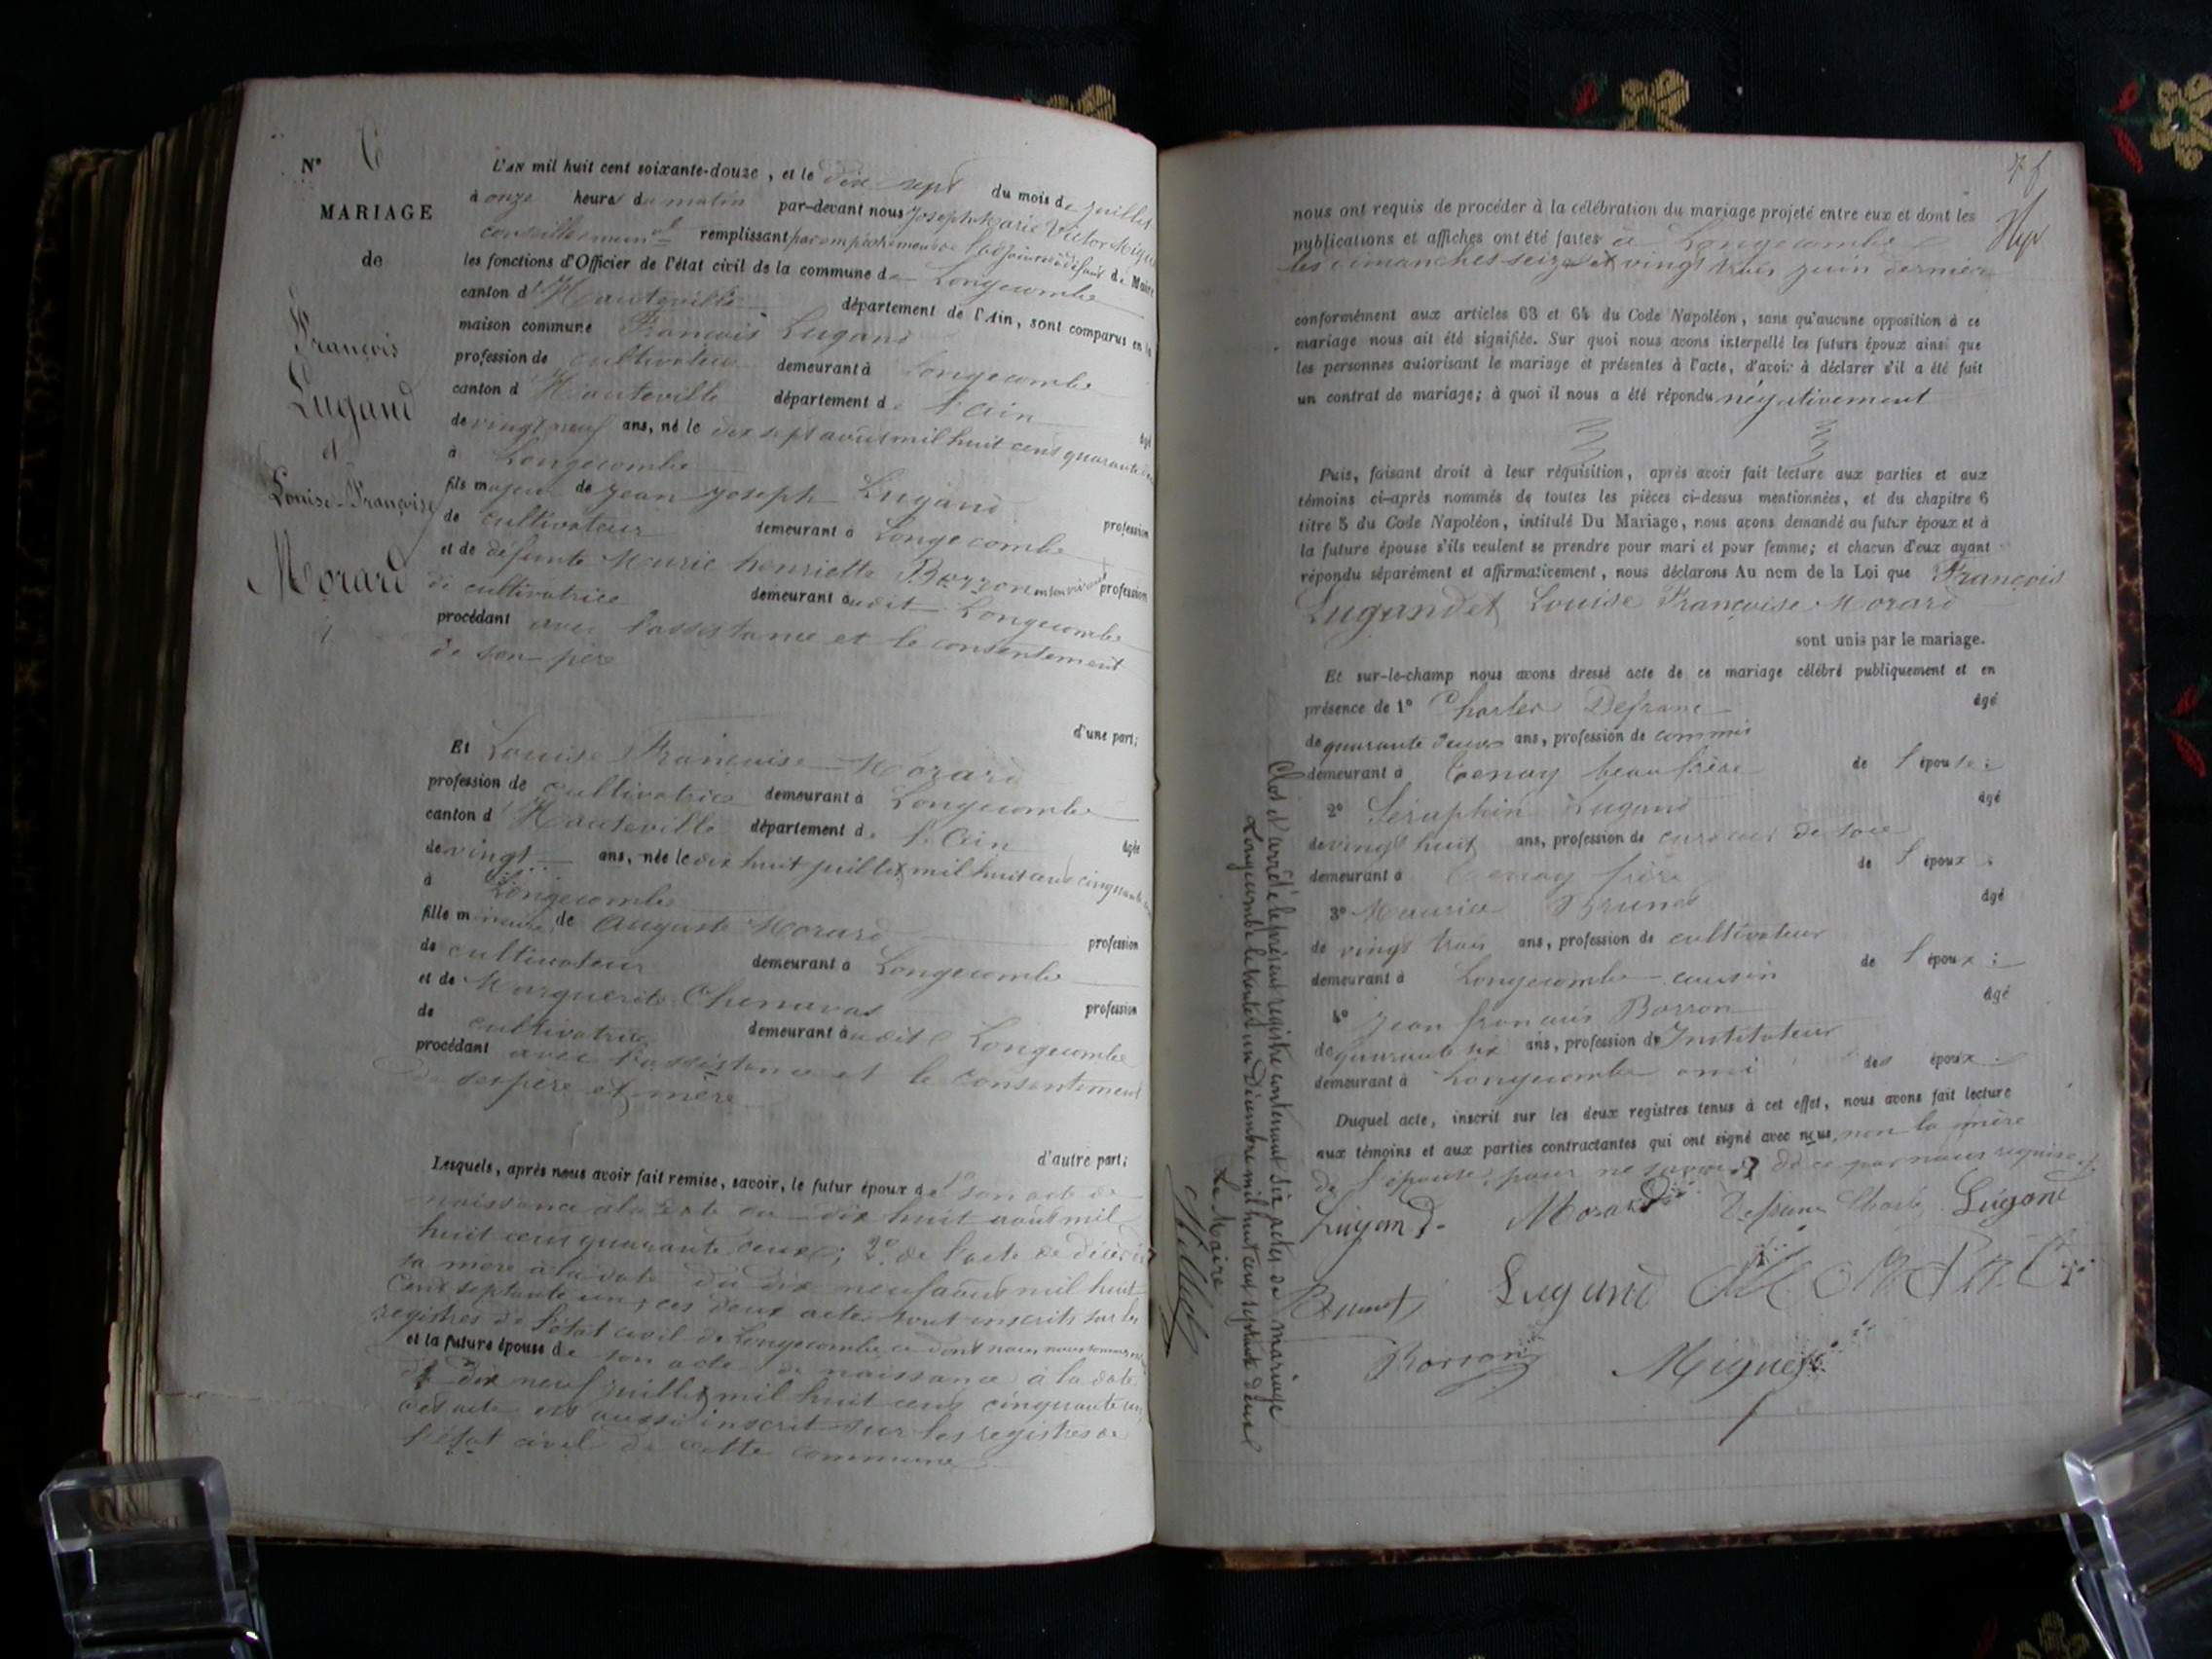 N° 6
MARIAGE
de
François
Lugand
et
Louise-Françoise
Morard
L'AN mil huit cent soixante-douze, et le dix sept du mois de juillet
à onze heures du matin par-devant nous Joseph Marie Victor Miguet
conseiller mun al remplissant par empêchement de l'adjoint à défaut de Maire
les fonctions d'Officier de l'état civil de la commune de Longecombe
canton d'Hauteville département de l'Ain, sont comparus en la
maison commune François Lugand
profession de cultivateur demeurant à Longecombe
canton d'Hauteville département de l'Ain âgé
de vingt neuf ans, né le dix sept août mil huit cent quarante
à Longecombe
fils majeur de Jean Joseph Lugand profession
de cultivateur demeurant à Longecombe
et de défunte Marie henriette Borron en son vivant profession
de cultivatrice demeurant audit Longecombe
procédant avec l'assistance et le consentement
de son père
d'une part;
Et Louise Françoise Morard
profession de cultivatrice demeurant à Longecombe
canton d'Hauteville département de l'Ain âgée
de vingt ans, née le dix huit juillet mil huit cent cinquante
à Longecombe
fille mineure de Auguste Morard profession
de cultivateur demeurant à Longecombe
et de Marguerite Chenavas profession
de cultivatrice demeurant audit Longecombe
procédant avec l'assistance et le consentement
de ses père et mère
d'autre part;
Lesquels, après nous avoir fait remise, savoir, le futur époux de 1° son acte de
naissance à la date du dix huit août mil
huit cent quarante deux; 2° de l'acte de décès de
sa mère à la date du dix neuf août mil huit
cent septante un, ces deux actes sont inscrits sur les
registres de l'état civil de Longecombe ce dont nous nous sommes
et la future épouse de son acte de naissance à la date
du dix neuf juillet mil huit cent cinquante un
cet acte est aussi inscrit sur les registres de
l'état civil de cette commune
nous ont requis de procéder à la célébration du mariage projeté entre eux et dont les
publications et affiches ont été faites à Longecombe
les dimanches seize et vingt trois juin dernier
conformément aux articles 63 et 64 du Code Napoléon, sans qu'aucune opposition à ce
mariage nous ait été signifiée. Sur quoi nous avons interpellé les futurs époux ainsi que
les personnes autorisant le mariage et présentes à l'acte, d'avoir à déclarer s'il a été fait
un contrat de mariage; à quoi il nous a été répondu négativement
Puis, faisant droit à leur réquisition, après avoir fait lecture aux parties et aux
témoins ci-après nommés de toutes les pièces ci-dessus mentionnées, et du chapitre 6
titre 5 du Code Napoléon, intitulé Du Mariage, nous avons demandé au futur époux et à
la future épouse s'ils veulent se prendre pour mari et pour femme; et chacun d'eux ayant
répondu séparément et affirmativement, nous déclarons Au nom de la Loi que François
Lugand et Louise Françoise Morard
sont unis par le mariage.
Et sur-le-champ nous avons dressé acte de ce mariage célébré publiquement et en
présence de 1° Charles Defranc âgé
de quarante deux ans, profession de commis
demeurant à Tenay beau frère de l'épouse;
2° Séraphin Lugand âgé
de vingt huit ans, profession de de soie
demeurant à Tenay frère de l'époux;
3° Maurice Brunet âgé
de vingt trois ans, profession de cultivateur
demeurant à Longecombe cousin de l'époux;
4° Jean françois Borron âgé
de quarante six ans, profession de Instituteur
demeurant à Longecombe ami des époux.
Duquel acte, inscrit sur les deux registres tenus à cet effet, nous avons fait lecture
aux témoins et aux parties contractantes qui ont signé avec nous, non la mère
de l'épouse, pour ne savoir de ce par nous requise
Lugand. Morard Defranc Charle Lugand
Brunet Lugand
Borron Miguet
Clos et arrêté le présent registre contenant six actes de mariage
Longecombe le trente un Décembre mil huit cent septante deux
Le Maire